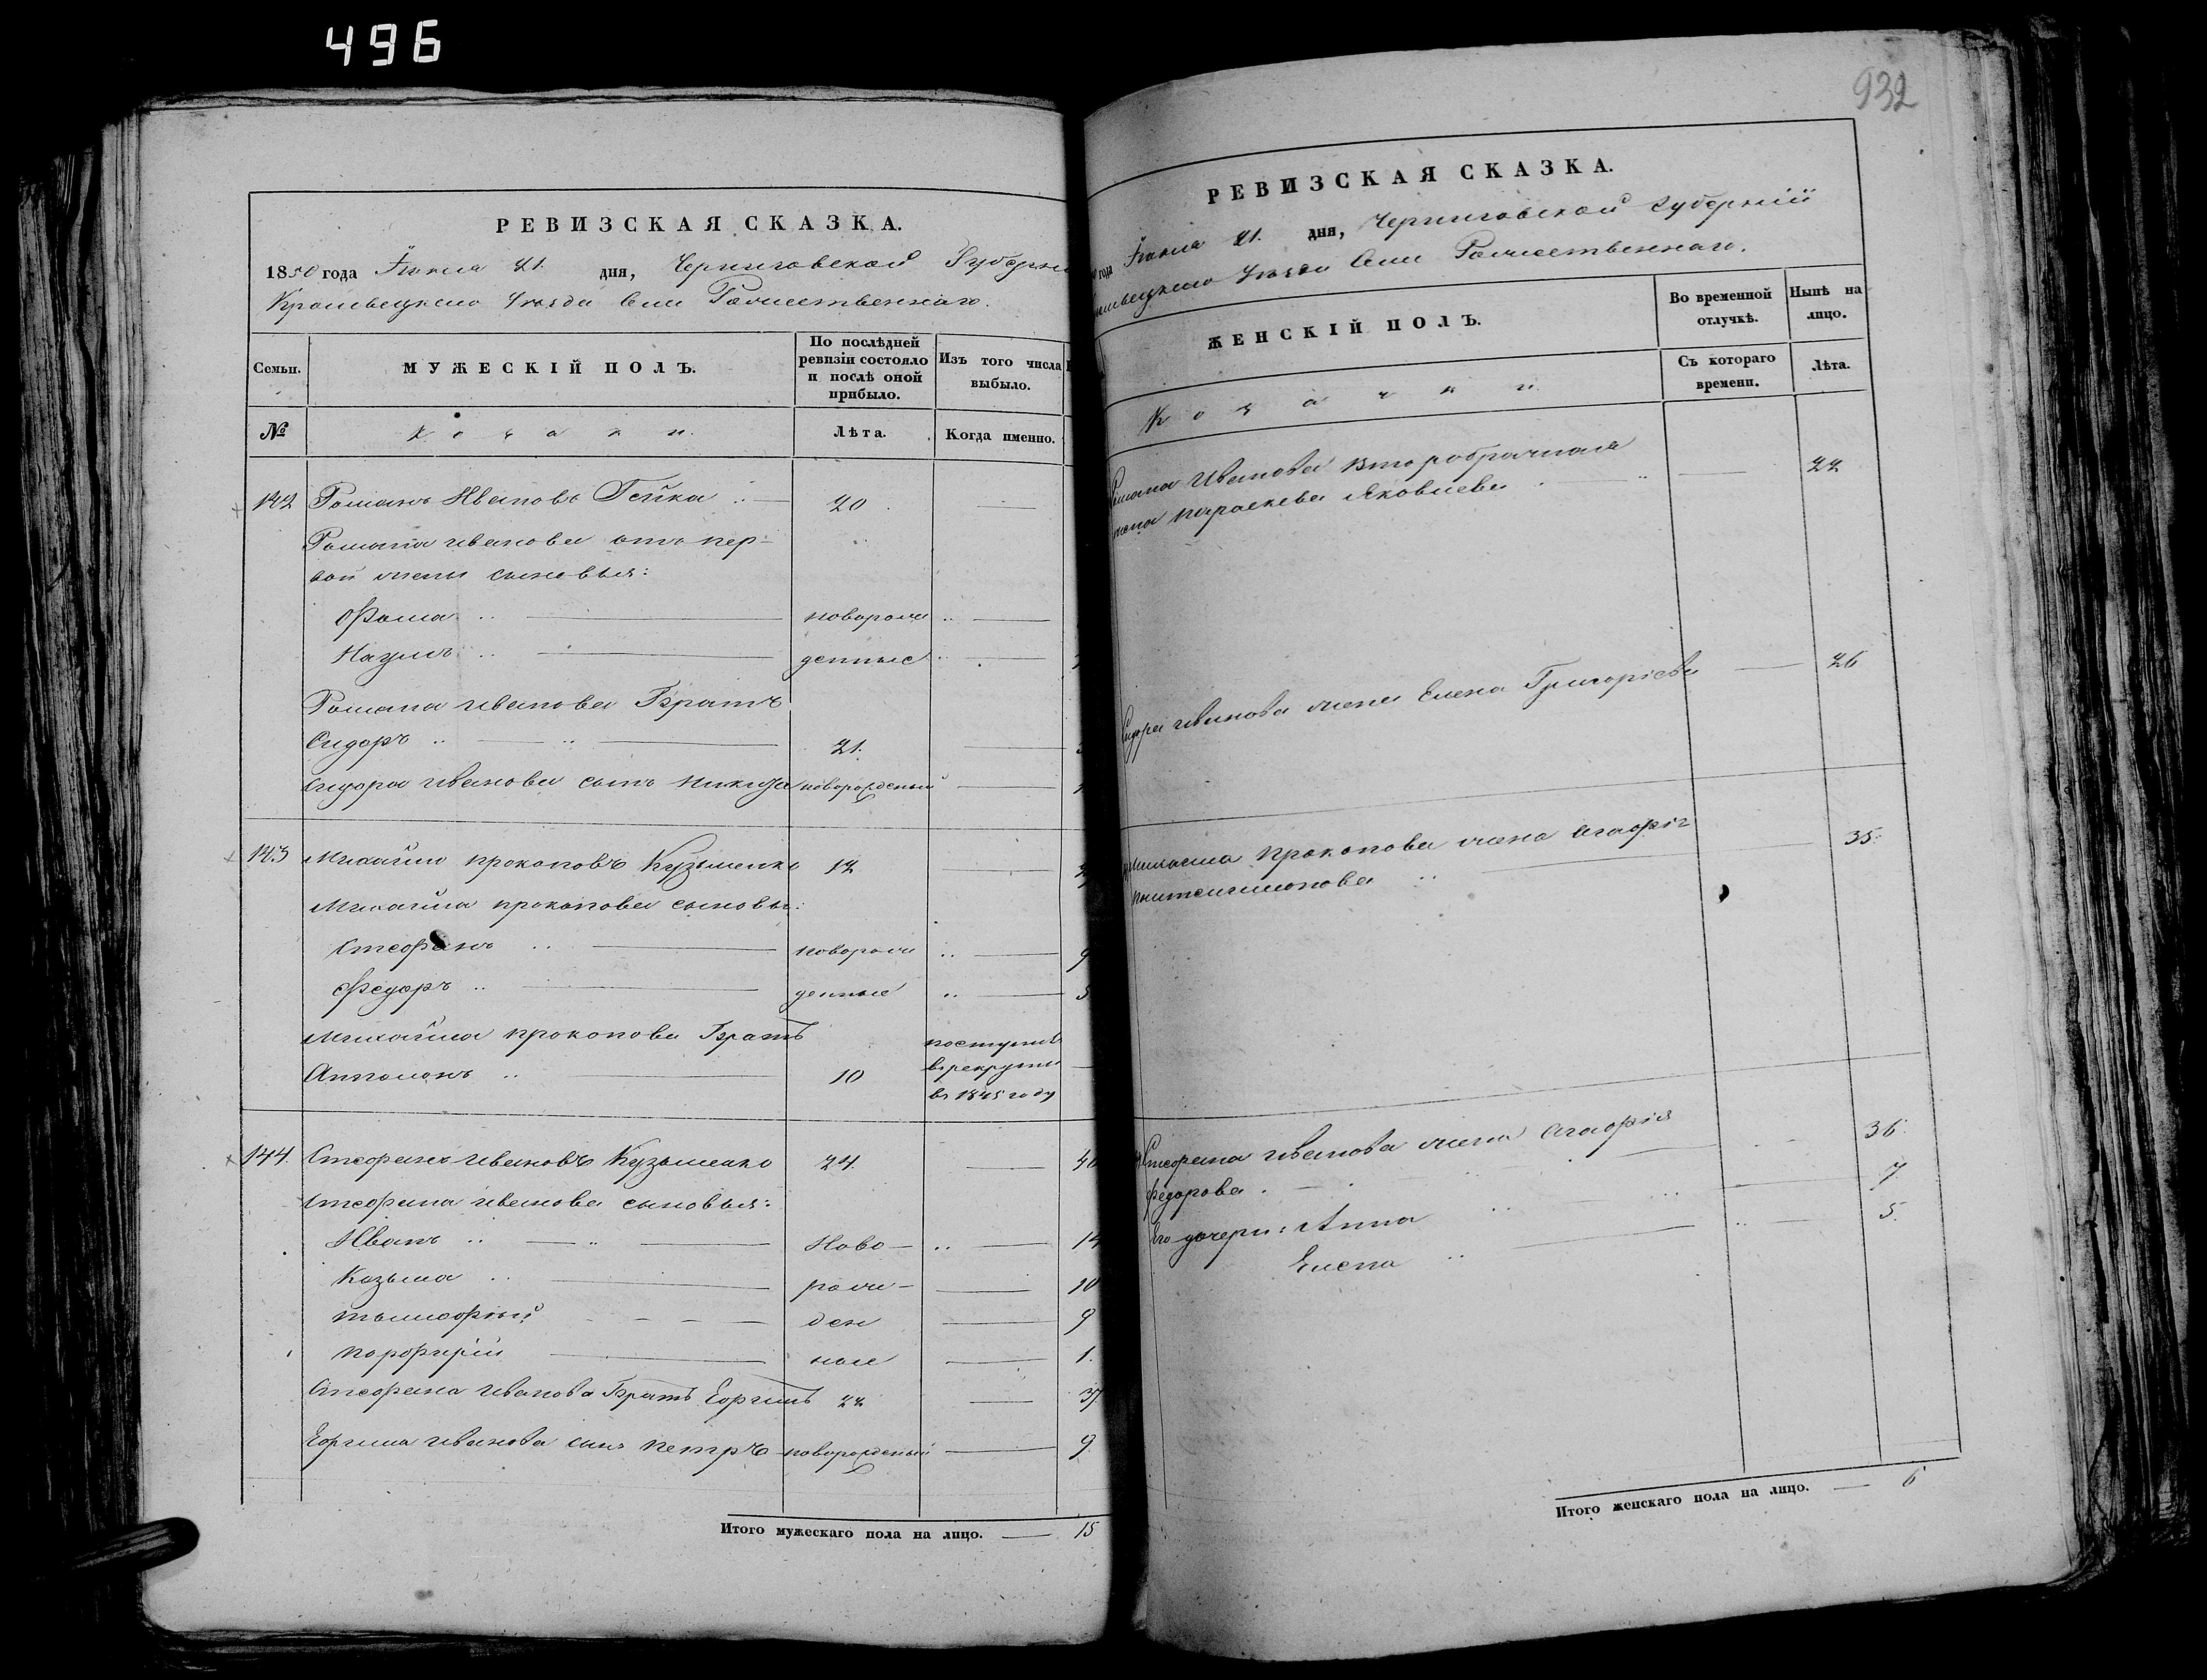 496
РЕВИЗСКАЯ СКАЗКА.
1850 года Июня 21. дня, Черниговской Губерн
Кролевецкаго Уѣзда Села Рожественнаго.
Семьи. МУЖЕСКІЙ ПОЛЪ. По послѣдней ревизіи состояло и послѣ оной прибыло. Изъ того числа выбыло.
№ Козаки. Лѣта. Когда именно.
142 Романъ Ивановъ Гейка 20
Романа Иванова отъ пер-
вой жены сыновья:
Фома новорож
Наумъ денные
Романа Иванова Братъ
Сидоръ 21.
Сидора Иванова сынъ Никита новорожденый
143 Михайло Прокоповъ Кузьменко 12
Михайла Прокопова сыновья:
Стефанъ новорож 9
Федоръ денные 5
Михайла Прокопова Братъ поступилъ
Апполонъ 10 въ рекруты
въ 1845 году
144. Стефанъ Ивановъ Кузьменко 24. 40
Стефана Иванова сыновья:
Иванъ Ново- 14
Козьма рож- 10
ден 9
Порфирій ные 1.
Стефана Иванова Братъ 22 37.
Иванова сынъ Петръ новорожденый 9.
Итого мужескаго пола на лицо. 15
932
РЕВИЗСКАЯ СКАЗКА.
года Июня 21. дня, Черниговской Губерніи
Уѣзда Села Рожественнаго.
ЖЕНСКІЙ ПОЛЪ. Во временной отлучкѣ. Нынѣ на лицо.
Козачки. Съ котораго времени. Лѣта.
Романа Иванова второбрачная
жена Параскева Яковлева 22
Сидора Иванова жена Елена Григоріева 26
Михайла Прокопова жена Агафія 35.
Стефана Иванова жена Агафія
Федорова 36.
Его дочери: Анна 7.
Елена 5.
Итого женскаго пола на лицо. 6